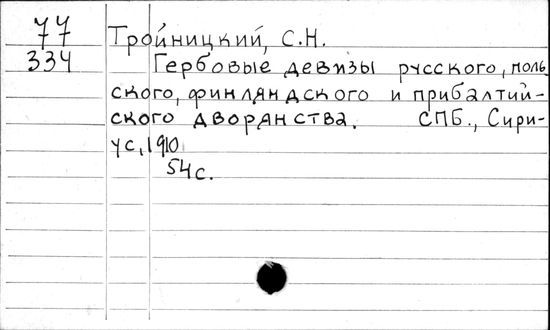 77 Тройницкий, С.Н.
334 Гербовые девизы русского, поль
ского, финляндского и прибалтий-
ского дворянства. СПБ., Сири-
ус, 1910
54с.